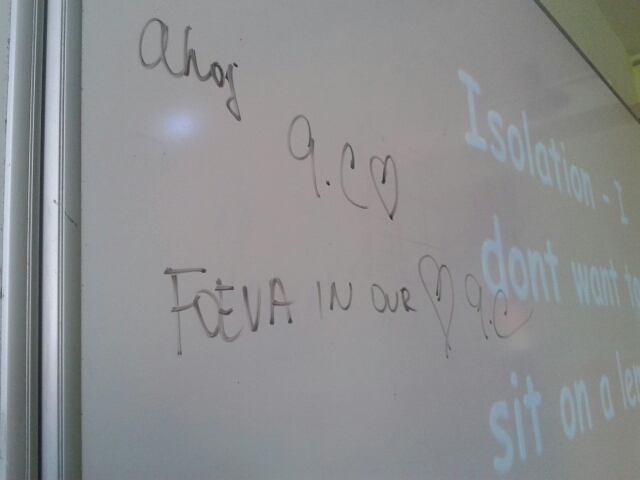 Ahoj
9.C♡
FOEVA IN OUR ♡ 9.C
Isolation - I
dont want to
sit on a